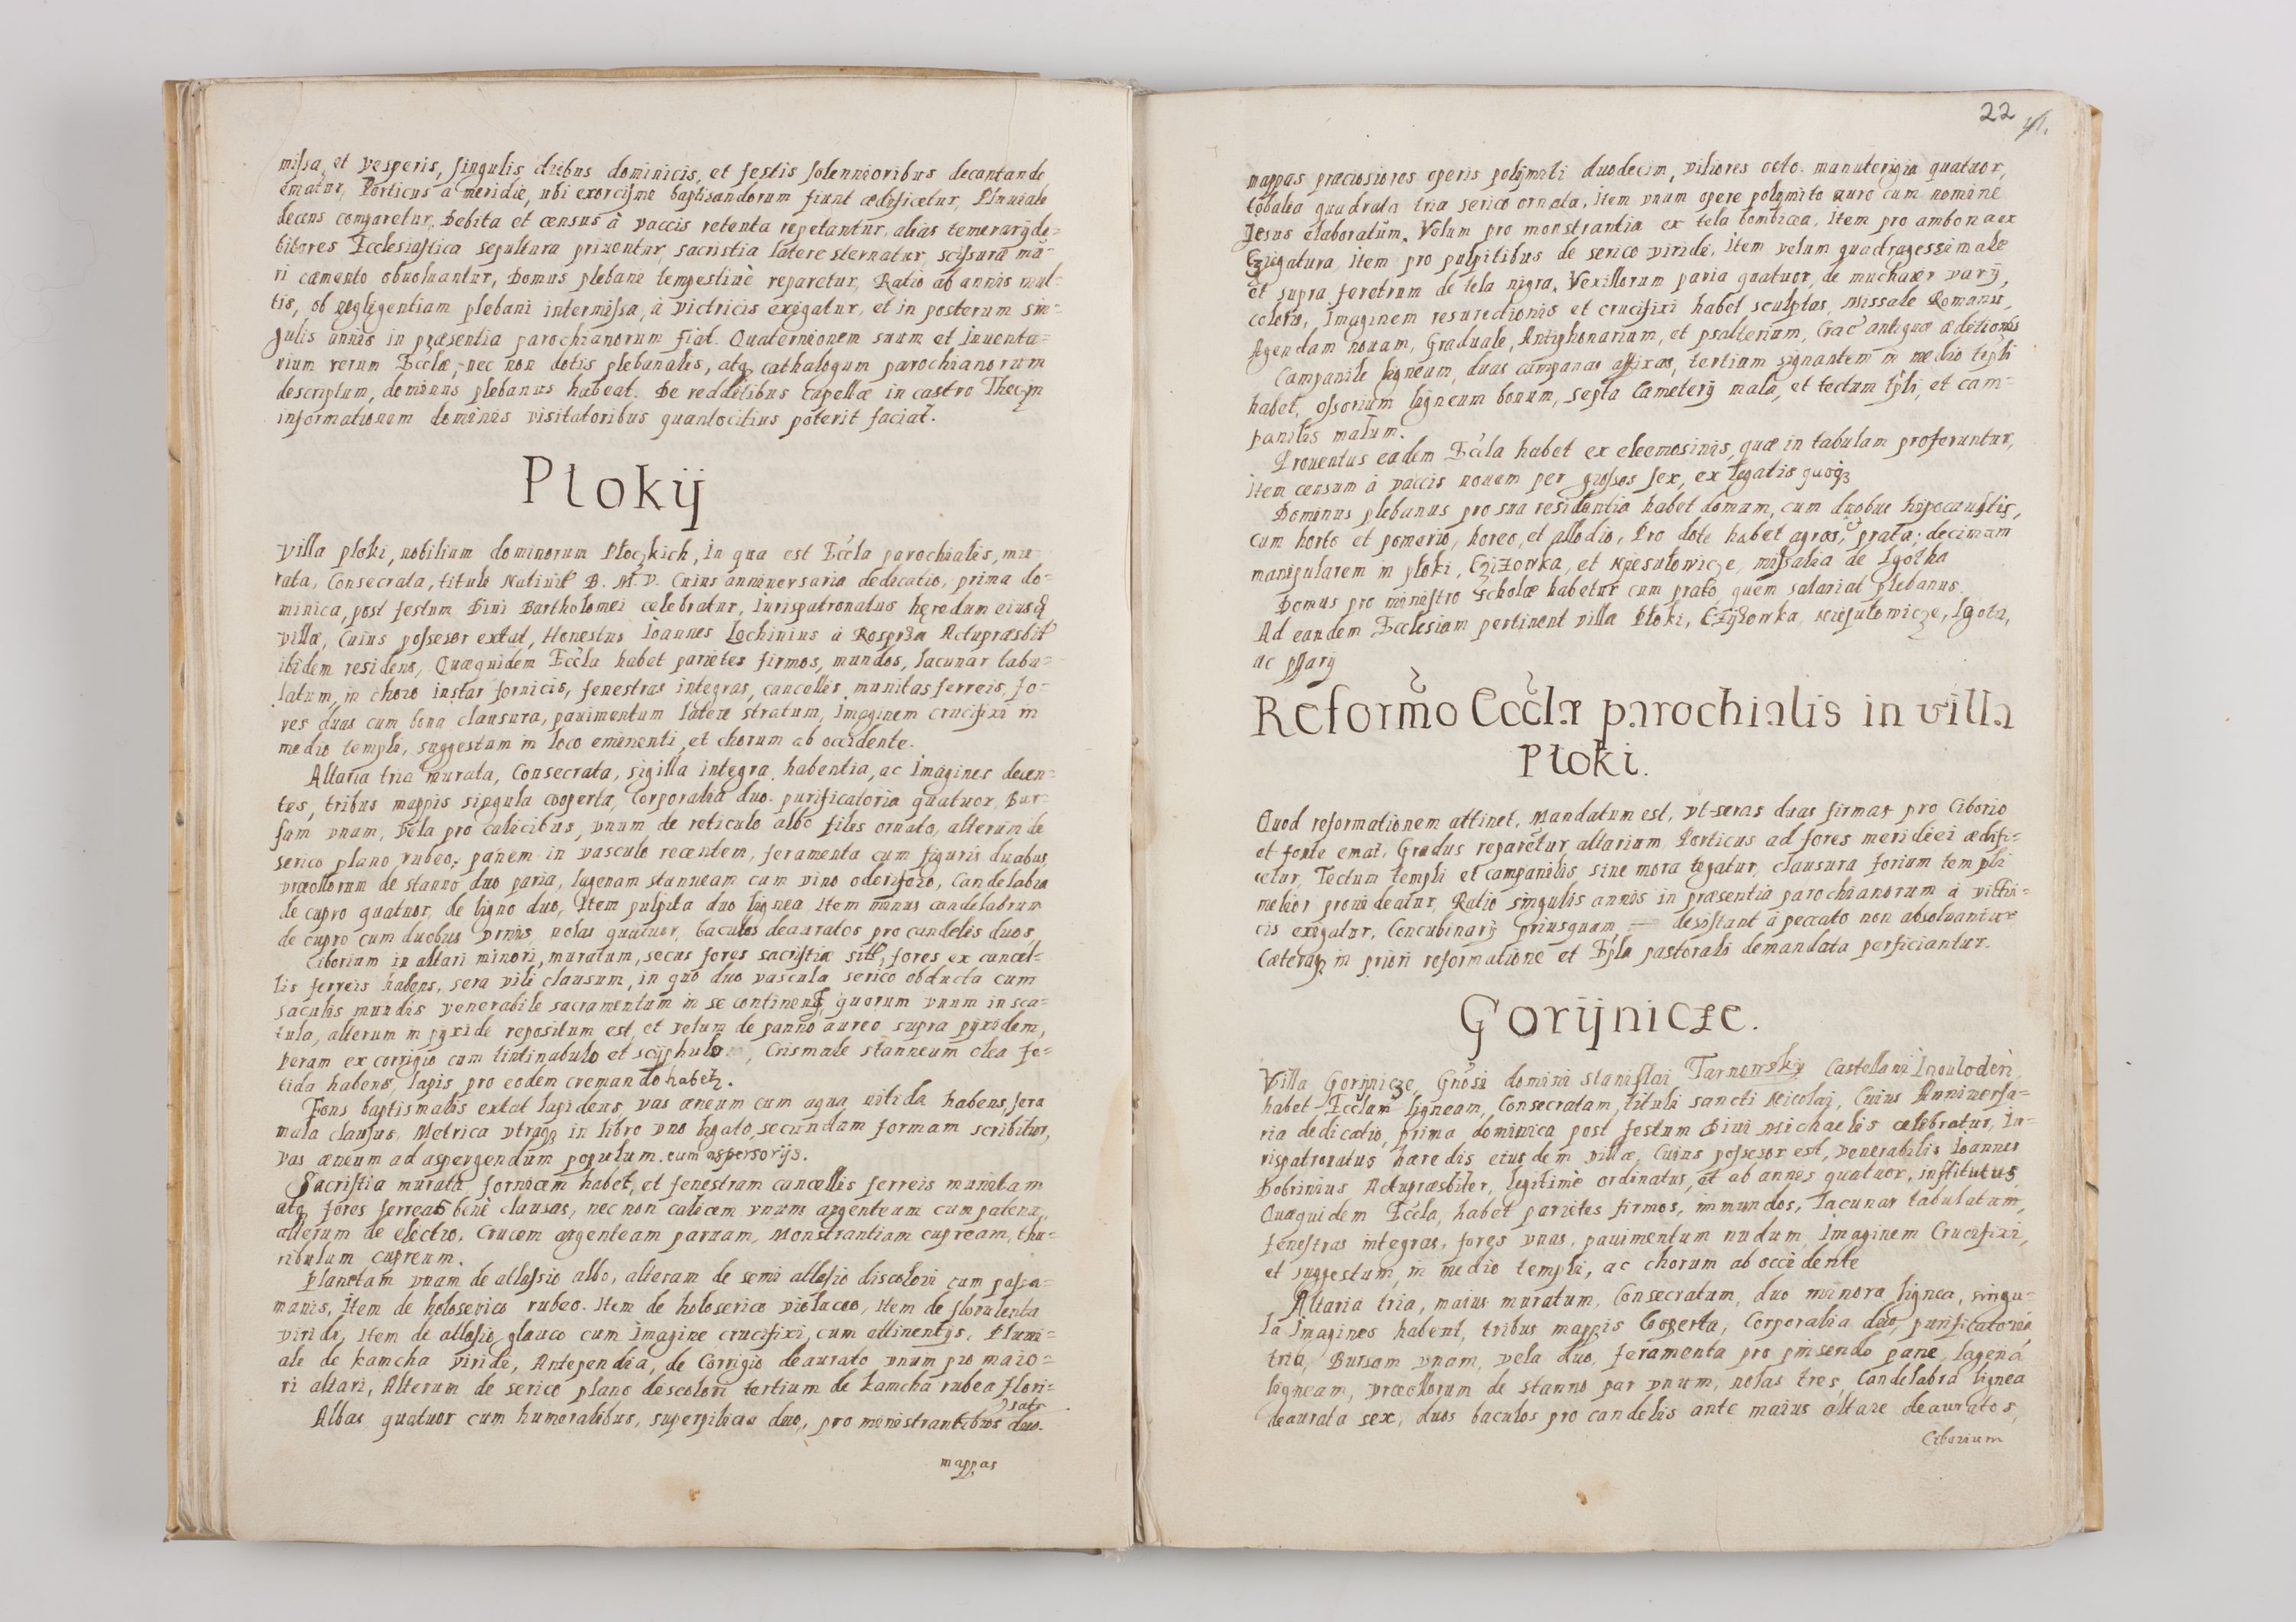 missa, et vesperis, singulis diebus dominicis, et festis solennioribus decantande
ematur, Porticus a meridie, ubi exorcismi baptisandorum fiunt ædificetur, Pluuiale
decens comparetur, Debita et census à vaccis retenta repetantur, alias temerarÿ de=
bitores Ecclesiastica sepultura priuentur, sacristia latere sternatur, scissura mu=
ri cæmento obuoluantur, Domus plebani tempestiuè reparetur, Ratio ab annis mul=
tis, ob negligentiam plebani intermissa, à victricis exigatur, et in posterum sin=
gulis annis in præsentia parochianorum fiat. Quaternionem suum et inuenta=
rium rerum Ecclæ, nec non dotis plebanalis, atq cathalogum parochianorum
descriptum, dominus plebanus habeat. De redditibus capellæ in castro Thecyn
informationem dominis visitatoribus quantocitius poterit faciat.
Płokij
Villa płoki, nobilium dominorum Płoczkich, in qua est Eccla parochialis, mu=
rata, Consecrata, tituli Natiuit B. M. V. Cuius anniuersaria dedicatio, prima do=
minica, post festum Diui Bartholomei celebratur, Iurispatronatus hęredum eiusd
villæ, Cuius possesor extat, Honestus Ioannes Lochinius à Rosprza Actupræsbit
ibidem residens, Quæquidem Eccla habet parietes firmos, mundos, lacunar tabu=
latum, in choro instar fornicis, fenestras integras, cancellis munitas ferreis, fo=
res duas cum bona clausura, pauimentum latere stratum, Imaginem crucifixi in
medio templi, suggestum in loco eminenti, et chorum ab occidente.
Altaria tria murata, Consecrata, sigilla integra habentia, ac Imagines decen=
tes, tribus mappis singula cooperta, Corporalia duo. purificatoria quatuor, Bur=
sam vnam, Vela pro calicibus, vnum de reticulo albo filis ornato, alterum de
serico plano rubeo, panem in vasculo recentem, feramenta cum figuris duabus,
vrceollorum de stanno duo paria, lagenam stanneam cum vino odorifero, Candelabra
de cupro quatuor, de ligno duo, Item pulpita duo lignea, Item minus candelabrum
de cupro cum duobus nolas quatuor, baculos deauratos pro candelis duos,
Ciborium in altari minori, muratum, secus fores sacristiæ sitt, fores ex cancel=
lis ferreis habens, sera vili clausum, in quo duo vascula serico obducta cum
saculis mundis venerabile sacramentum in se continent, quorum vnum in sca=
tula, alterum in pyxide repositum est, et velum de panno aureo supra pÿxidem,
Peram ex corrigio cum tintinabulo et scÿphulo, Crismale stanneum olea fe=
tida habens, lapis pro eodem cremando habet.
Fons baptismalis extat lapideus, vas æneum cum aqua nitida habens, sera
mala clausus, Metrica vtraq in libro vno ligato, secundum formam scribitur,
vas æneum ad aspergendum populum. cum aspersorijs.
Sacristia murata fornicem habet, et fenestram cancellis ferreis munitam
atq fores ferreas benè clausas, nec non calicem vnum argenteum cum patena,
alterum de electro. Crucem argenteam paruam, Monstrantiam cupream, thu=
ribulum cupreum.
Planetam vnam de atlassio albo, alteram de semi atlasio discolori cum passa=
manis, Item de holoserico rubeo. Item de holoserico violaceo, Item de florulenta
viridi, Item de atlasio glauco cum Imagine crucifixi, cum attinentÿs. Pluui=
ale de kamcha viridi, Antependia, de Corrigio deaurato vnum pro maio=
ri altari, Alterum de serico plano discolori tertium de kamcha rubea flori=
sate
Albas quatuor cum humeralibus, superpilicia duo, pro ministrantibus duo.
mappas
22 41.
mappas præciosiores operis polÿmiti duodecim, viliores octo. manutergia quatuor,
tobalea quadrata tria serico ornata, Item vnum opere polÿmito auro cum nomine
Jesus elaboratum. Velum pro monstrantia ex tela bombicea, Item pro ambona ex
Cziegatura, Item pro pulpitibus de serico viridi, Item velum quadragessimale
et supra feretrum de tela nigra. Vexillorum paria quatuor, de muchaier varÿ,
coloris, Imaginem resurectionis et crucifixi habet sculptas, Missale Romanu,
Agendam nouam, Graduale, Antiphonarium, et psalterium, Crac antiquæ æditionis
Campanile ligneum, duas campanas affixas, tertiam signantem in medio tepli
habet, ossorium ligneum bonum, septa Cæmeterÿ mala, et tectum tpli, et cam=
panilis malum.
Prouentus eadem Eccla habet ex eleemosinis, quæ in tabulam proferuntur,
Item censum à vaccis nouem per grossos sex, ex legatis quoq
Dominus plebanus pro sua residentia habet domum, cum duobus hipocaustis,
cum horto et pomario, horeo, et allodio, Pro dote habet agros, prata, decimam
manipularem in płoki, Cziżowka, et Miesułowicze, missalia de Lgothka
Domus pro ministro Scholæ habetur cum prato, quem salariat plebanus.
Ad eandem Ecclesiam pertinent villa Płoki, Czÿżowka, Lgota,
ac psarÿ
Reformo Ecclæ parochialis in villa
Płoki.
Quod reformationem attinet, Mandatum est, vt seras duas firmas pro Ciborio
et fonte emat, Gradus reparetur altarium, Porticus ad fores meridiei ædifi=
cetur, Tectum templi et campanilis sine mora tegatur, clausura forium templi
melior prouideatur, Ratio singulis annis in præsentia parochianorum à vittri=
cis exigatur, Concubinarÿ priusquam desistant à peccato non absoluantur
Cæteraq in priori reformatione et Epla pastorali demandata perficiantur.
Gorÿnicze.
Villa Gorÿnicze, Gnosi domini Stanislai Tarnowskÿ Castellani Inouloden
habet Ecclam ligneam, Consecratam, tituli sancti Nicolai, Cuius Anniuersa=
ria dedicatio, prima dominica post festum Diui Michaelis celebratur, Iu=
rispatronatus hæredis eiusdem villæ, Cuius possesor est, Venerabilis Ioannes
Dobrinius Actupræsbiter, legitimè ordinatus, et ab annis quatuor, institutus,
Quæquidem Eccla, habet parietes firmos, immundos, lacunar tabulatum,
fenestras integras, fores vnas, pauimentum nudum, Imaginem Crucifixi,
et suggestum in medio templi, ac chorum ab occidente
Altaria tria, maius muratum, Consecratum, duo minora lignea, singu=
la Imagines habent, tribus mappis Coperta, Corporalia duo, purificatoria
tria, Bursam vnam, vela duo, feramenta pro pinsendo pane, lagena
ligneam, vrceollorum de stanno par vnum, nolas tres, Candelabra lignea
deaurata sex, duos baculos pro candelis ante maius altare deauratos,
Ciborium